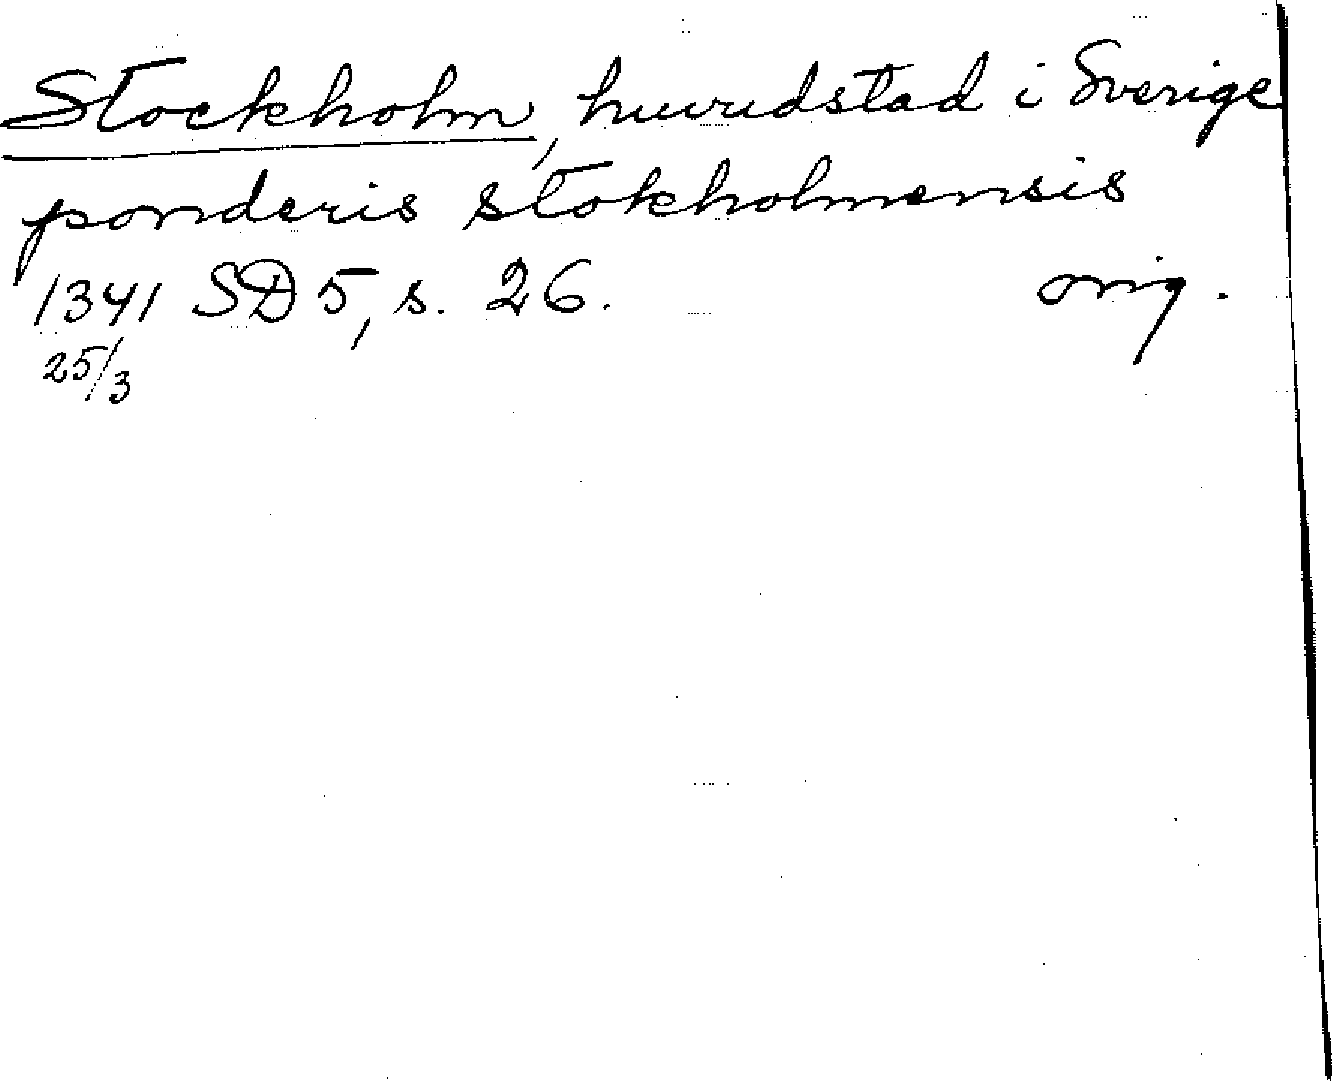 Stockholm, huvudstad i Sverige
ponderis stokholmensis
1341 SD 5, s. 26. orig.
25/3